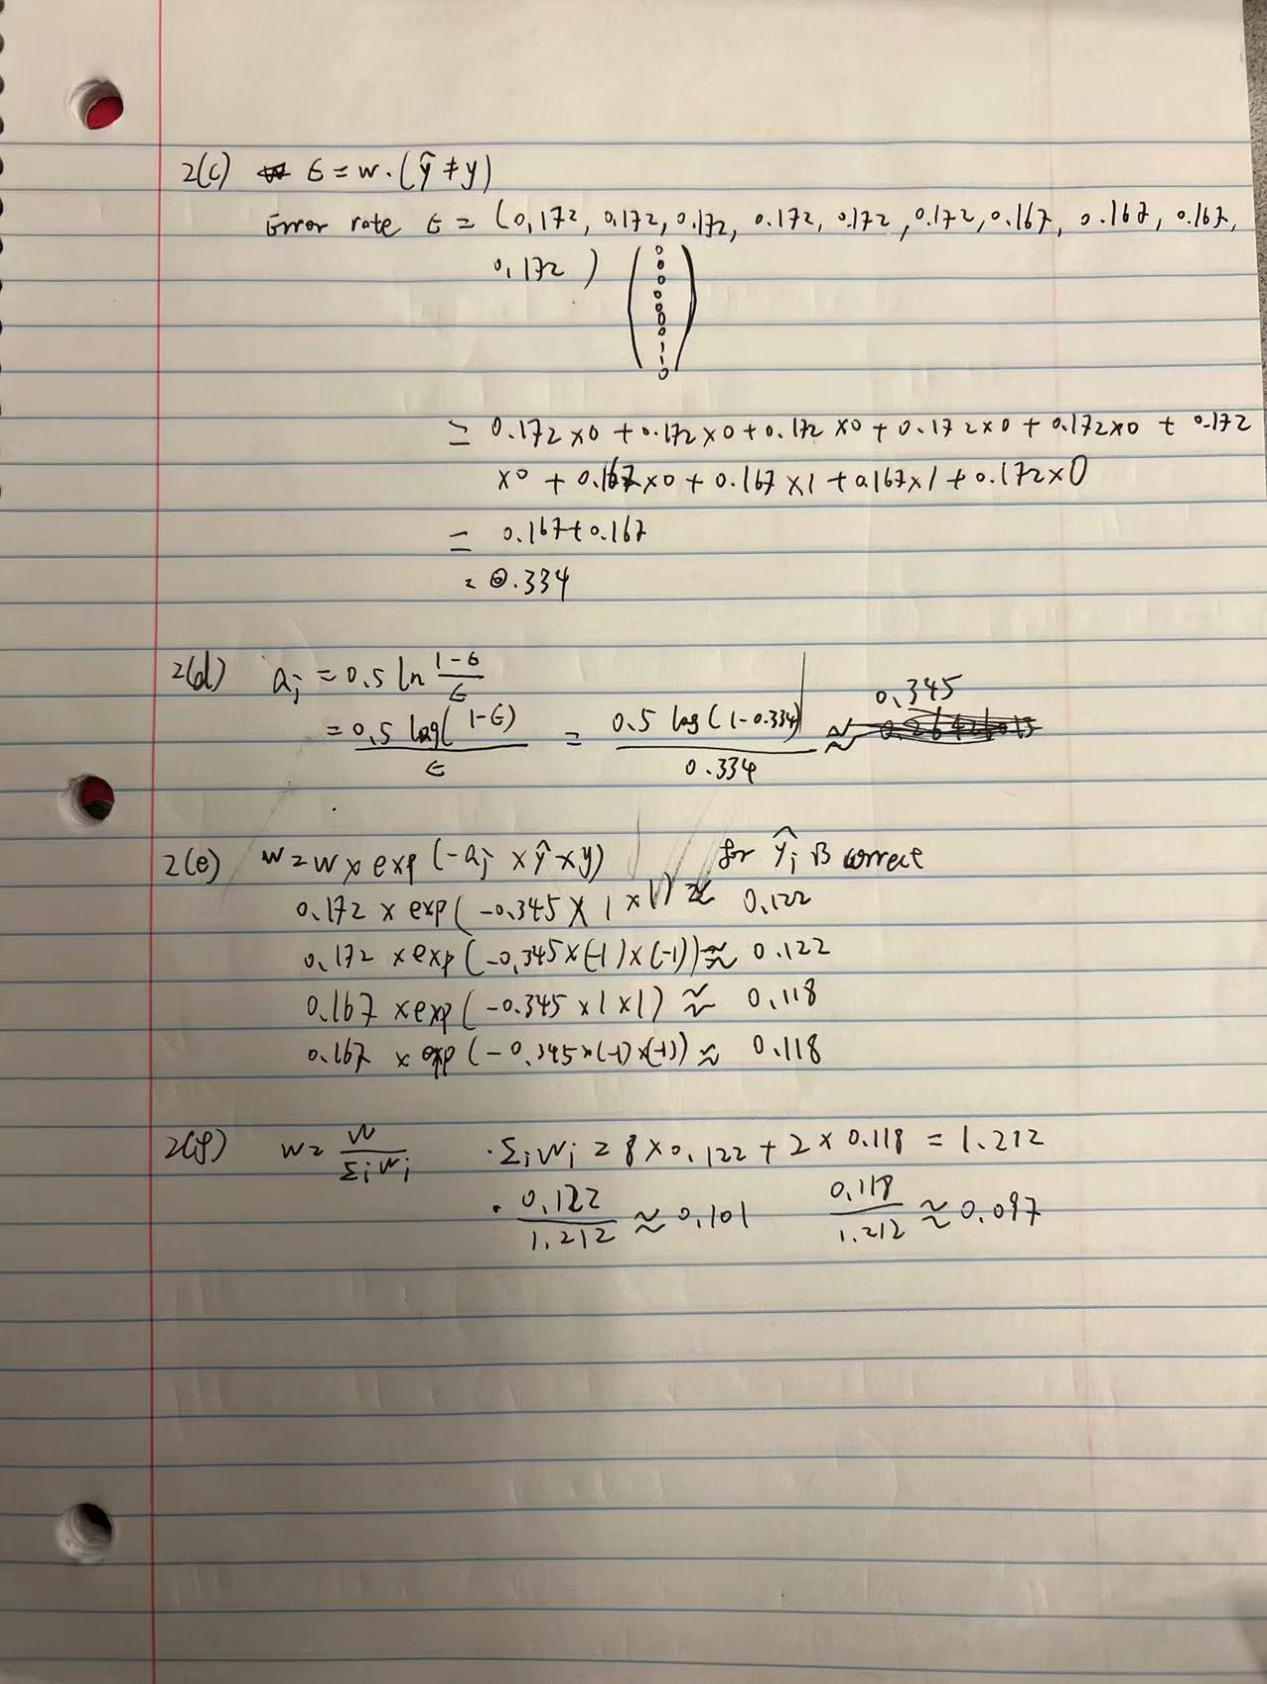 2(c) ϵ = w · (ŷ ≠ y)
Error rate ϵ = (0.172, 0.172, 0.172, 0.172, 0.172, 0.172, 0.167, 0.167, 0.167,
0.172)
0
0
0
0
0
0
0
1
1
0
= 0.172×0 + 0.172×0 + 0.172×0 + 0.172×0 + 0.172×0 + 0.172
×0 + 0.167×0 + 0.167×1 + 0.167×1 + 0.172×0
= 0.167+0.167
= 0.334
2(d) aj = 0.5 ln (1-ϵ)/ϵ
= 0.5 log(1-ϵ)/ϵ = 0.5 log(1-0.334)/0.334 ≈ 0.345
2(e) w = w × exp(-aj × ŷ × y) for ŷi is correct
0.172 × exp(-0.345 × 1 × 1) ≈ 0.122
0.172 × exp(-0.345×(-1)×(-1)) ≈ 0.122
0.167 × exp(-0.345 × 1 × 1) ≈ 0.118
0.167 × exp(-0.345×(-1)×(-1)) ≈ 0.118
2(f) w = w/Σi wi · Σi wi = 8×0.122 + 2×0.118 = 1.212
· 0.122/1.212 ≈ 0.101 0.118/1.212 ≈ 0.097